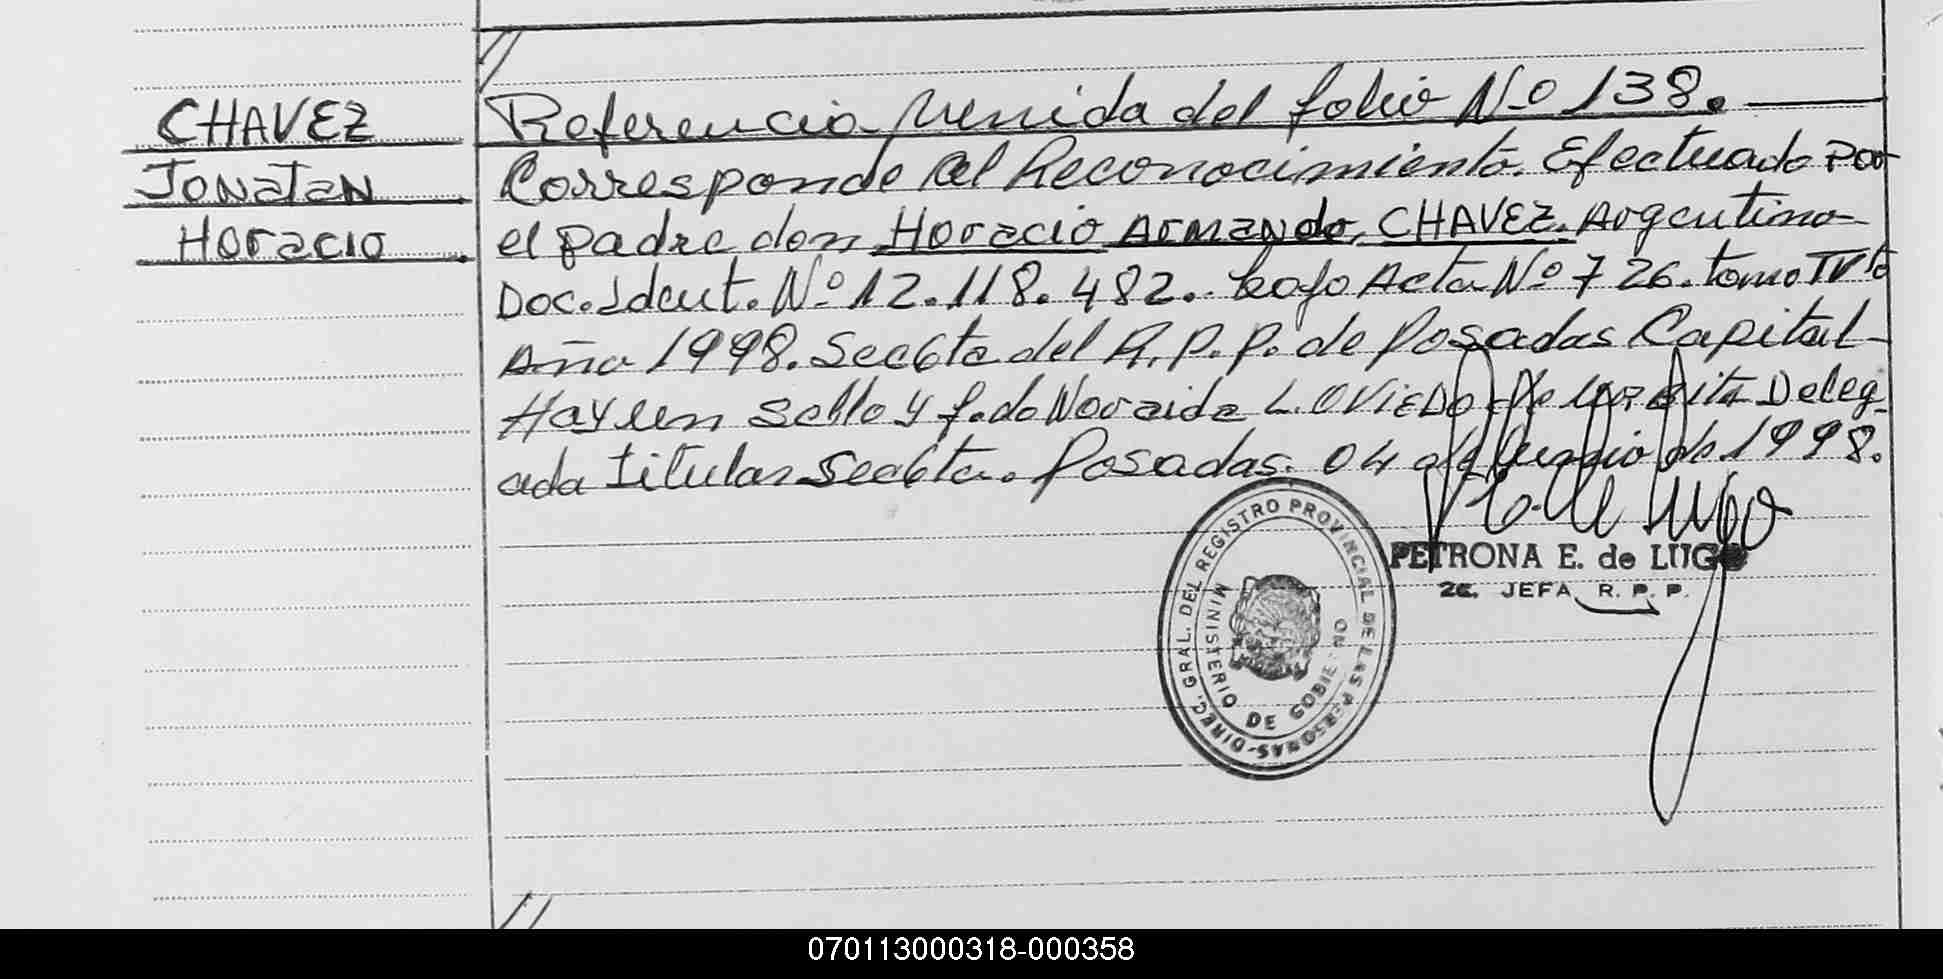 CHAVEZ
JONATAN
HORACIO
Referencia Venida del folio Nº 138.
Corresponde al Reconocimiento. Efectuado por
el padre don HORACIO ARMANDO, CHAVEZ. Argentino
Doc. Ident. Nº 12.118.482. bajo Acta Nº 726. tomo IVto
Año 1998. Secc 6ta del R.P.P. de Posadas Capital-
Hay un sello y f.do Noraida L. OVIEDO de Deleg
ada titular Secc 6ta. Posadas. 04 de Junio de 1998.
PETRONA E. de LUGO
2a. JEFA R. P. P.
DIREC. GRAL. DEL REGISTRO PROVINCIAL DE LAS PERSONAS-
MINISTERIO DE GOBIERNO
070113000318-000358